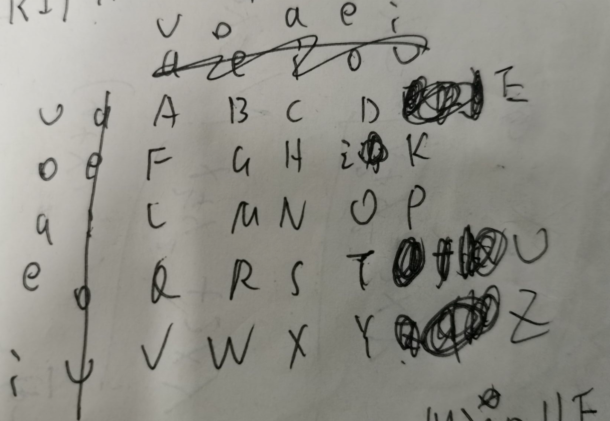 u o a e i
a e i o u
u a A B C D E
o e F G H i K
a i L M N O P
e o Q R S T U
i u V W X Y Z